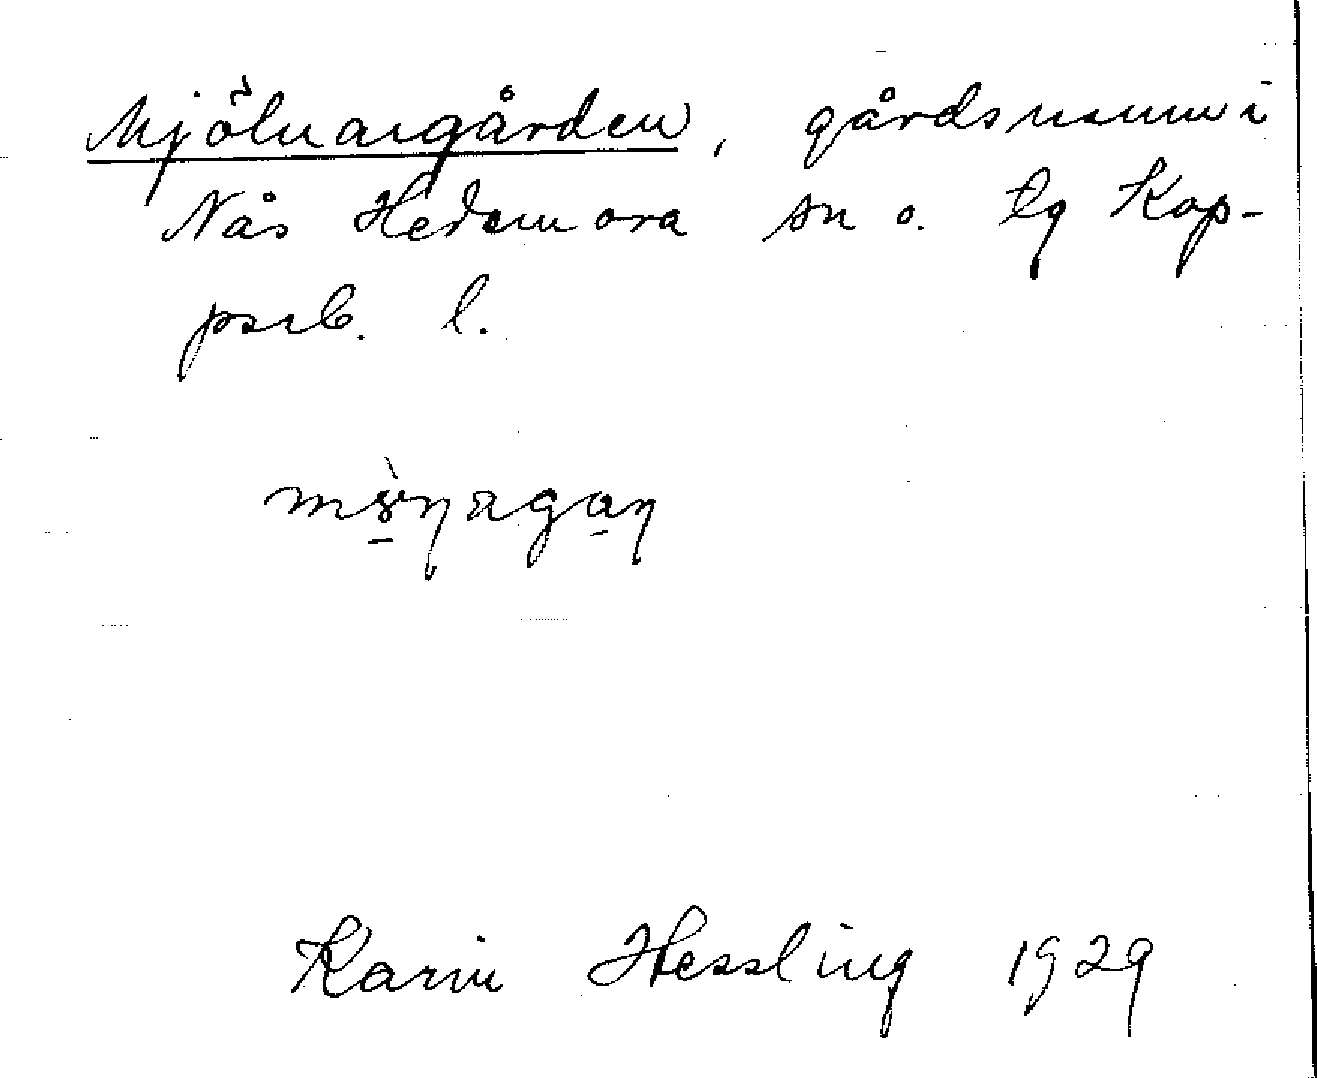 Mjölnargården, gårdsnamn i
Nås Hedemora sn o. lg Kop-
parb. l.
Karin Hessling 1929